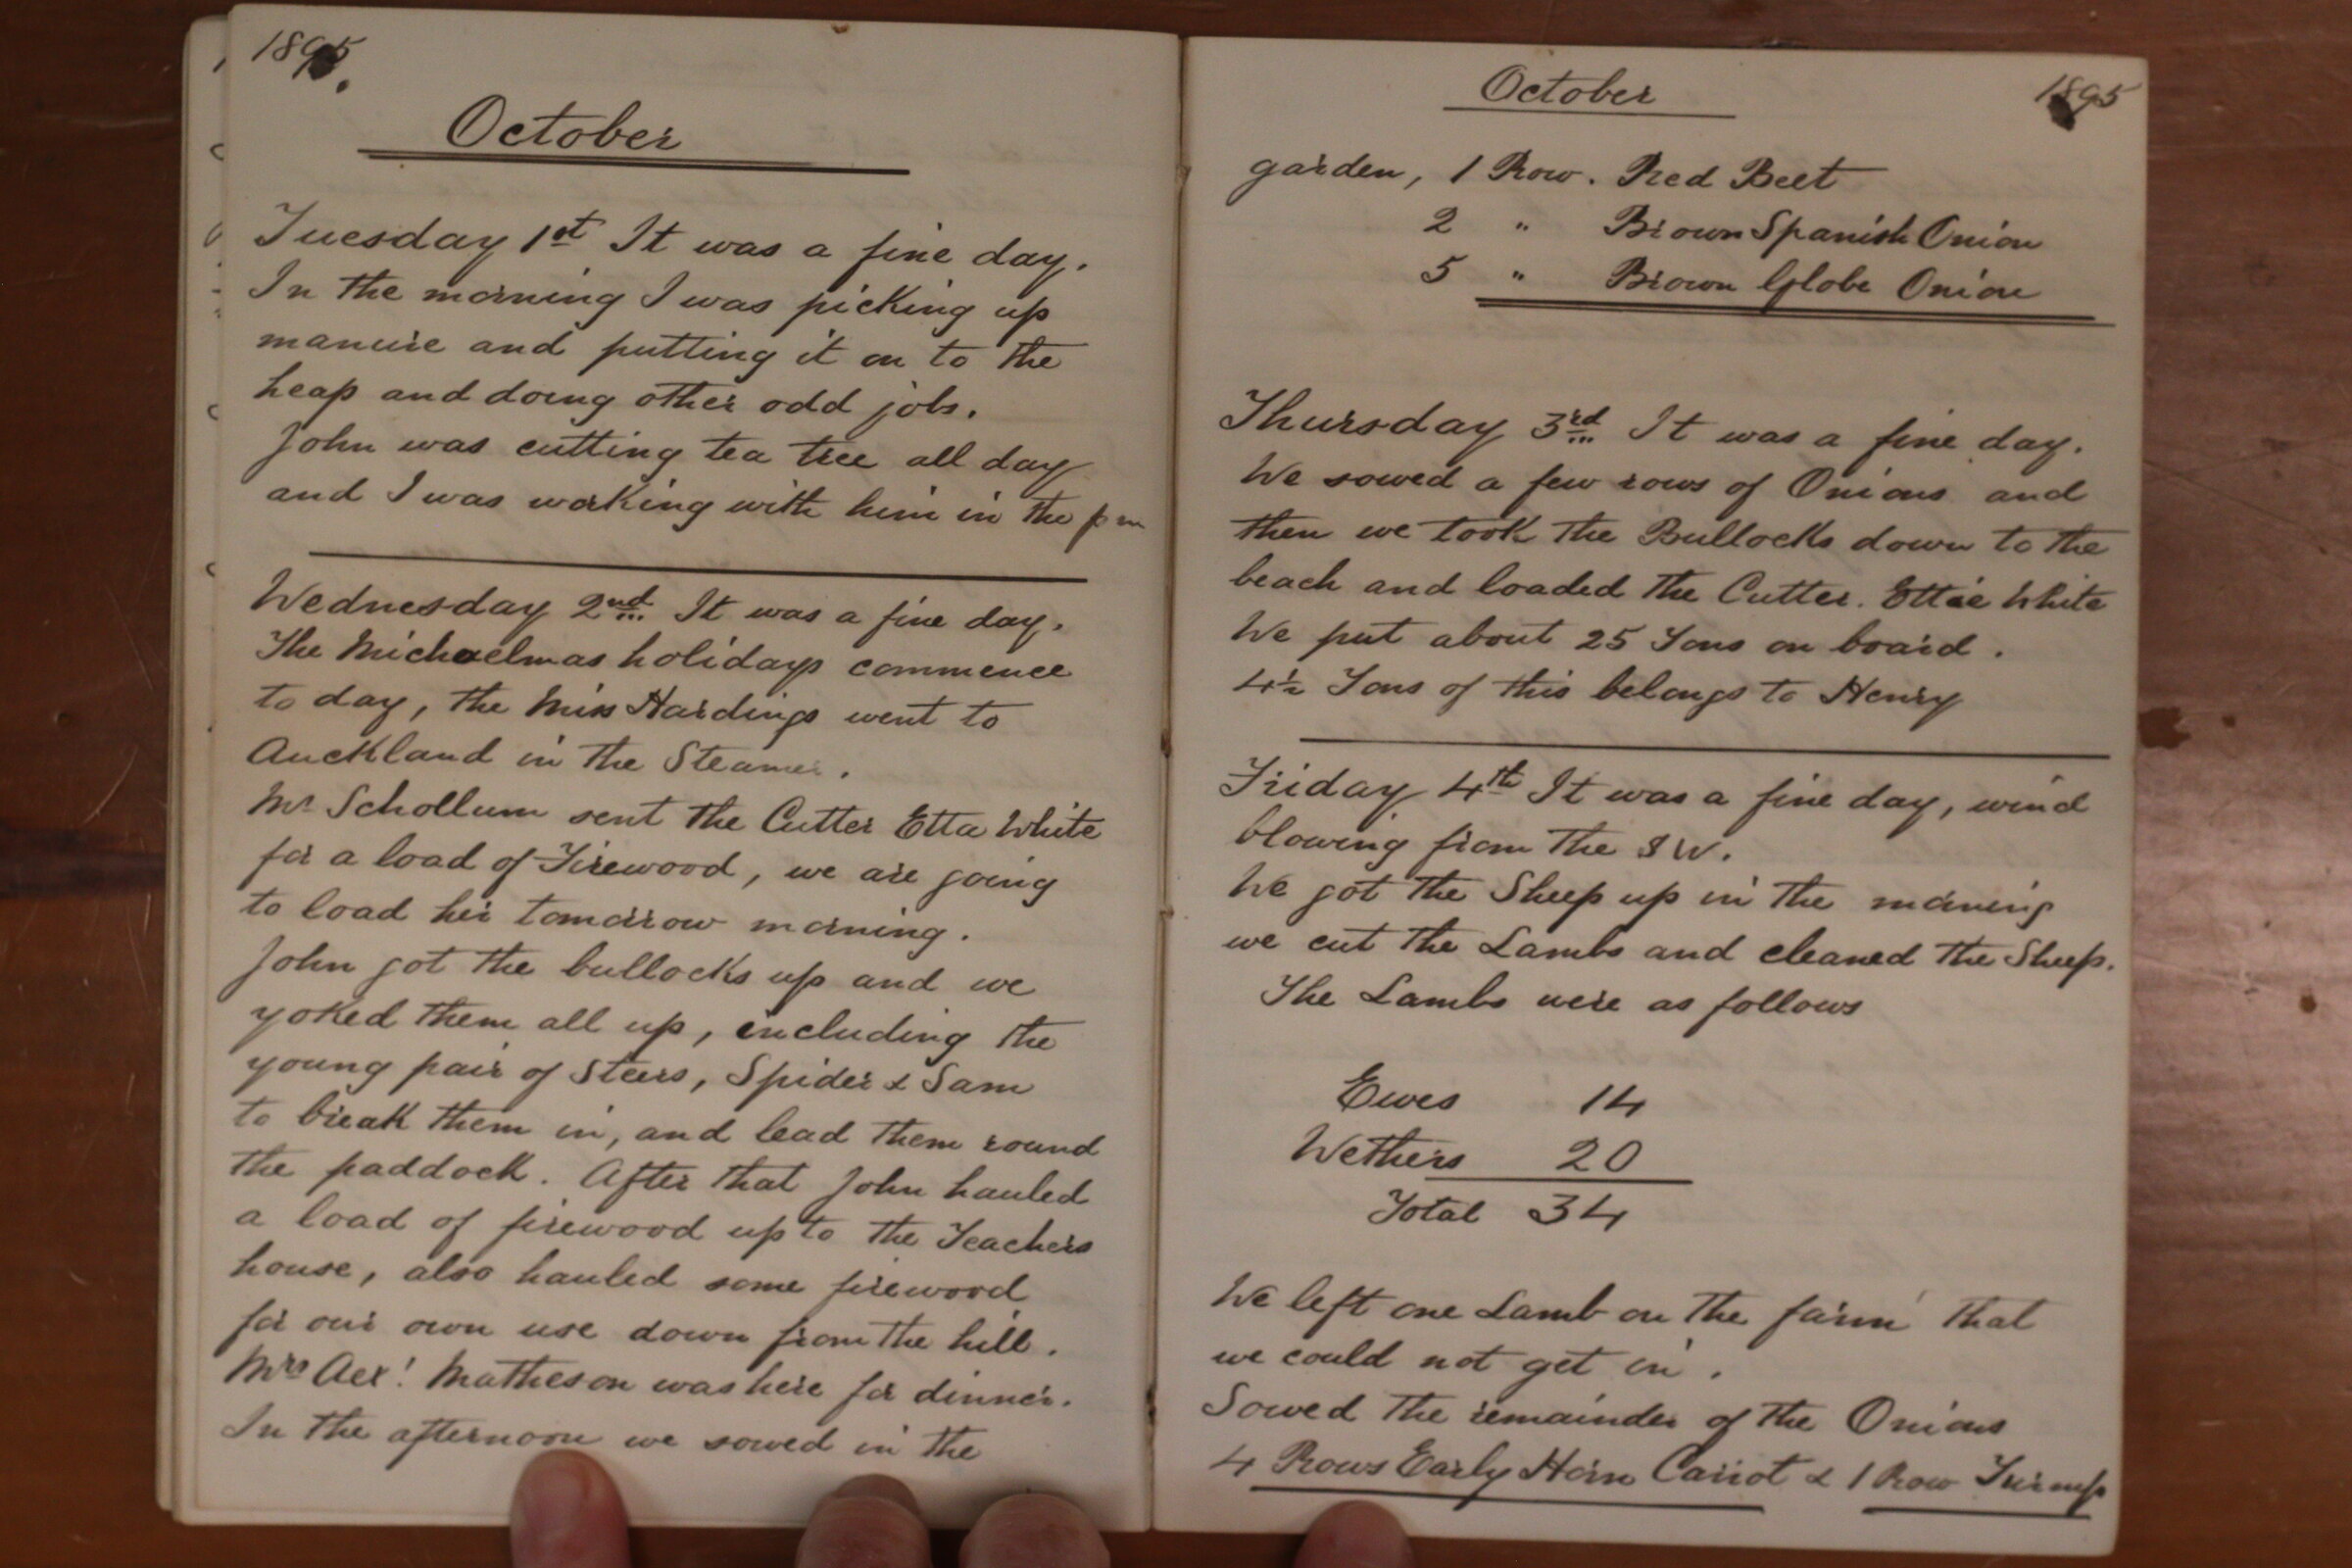 1895.
October
Tuesday 1st It was a fine day.
In the morning I was picking up
manure and putting it on to the
heap and doing other odd jobs.
John was cutting tea tree all day
and I was working with him in the pm
Wednesday 2nd It was a fine day.
The Michaelmas holidays commence
to day, the Miss Hardings went to
Auckland in the Steamer.
Mr Schollum sent the Cutter Etta White
for a load of Firewood, we are going
to load her tomorrow morning.
John got the bullocks up and we
yoked them all up, including the
young pair of Steers, Spider & Sam
to break them in, and lead them round
the paddock. After that John hauled
a load of firewood up to the Teachers
house, also hauled some firewood
for our own use down from the hill.
Mrs Aex! Matheson was here for dinner.
In the afternoon we sowed in the
October 1895
garden, 1 Row. Red Beet
2 " Brown Spanish Onion
5 " Brown Globe Onion
Thursday 3rd It was a fine day.
We sowed a few rows of Onions and
then we took the Bullocks down to the
beach and loaded the Cutter. Ettie White
We put about 25 Tons on board.
4½ Tons of this belongs to Henry
Friday 4th It was a fine day, wind
blowing from the SW.
We got the Sheep up in the morning
we cut the Lambs and cleaned the Sheep.
The Lambs were as follows
Ewes 14
Wethers 20
Total 34
We left one Lamb on the farm that
we could not get in.
Sowed the remainder of the Onions
4 Rows Early Horn Carrot & 1 Row Turnip